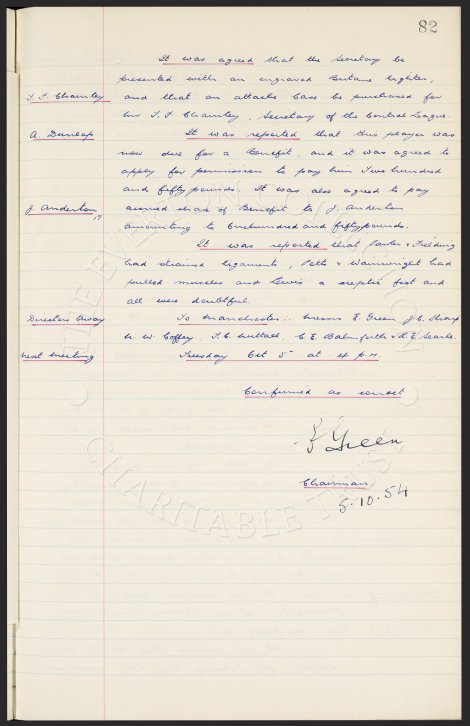 82
It was agreed that the Secretary be
presented with an engraved Butane lighter,
J. F. Chamley and that an attache case be purchased for
Mr J. F. Chamley, Secretary of the Central League.
A. Dunlop It was reported that this player was
now due for a Benefit, and it was agreed to
apply for permission to pay him Two hundred
and fifty pounds. It was also agreed to pay
J. Anderton accrued share of Benefit to J. Anderton
amounting to One hundred and fifty pounds.
It was reported that Parker & Fielding
had strained ligaments, Potts & Wainwright had
pulled muscles and Lewis a septic foot and
all were doubtful.
Directors Away To Manchester: Messrs E. Green, J. C. Sharp
N. W. Coffey, T. C. Nuttall, C. E. Balmforth & R. E. Searle.
Next Meeting Tuesday Oct 5th at 4 p.m.
Confirmed as correct
E Green
Chairman
5.10.54
THE EVERTON COLLECTION
CHARITABLE TRUST